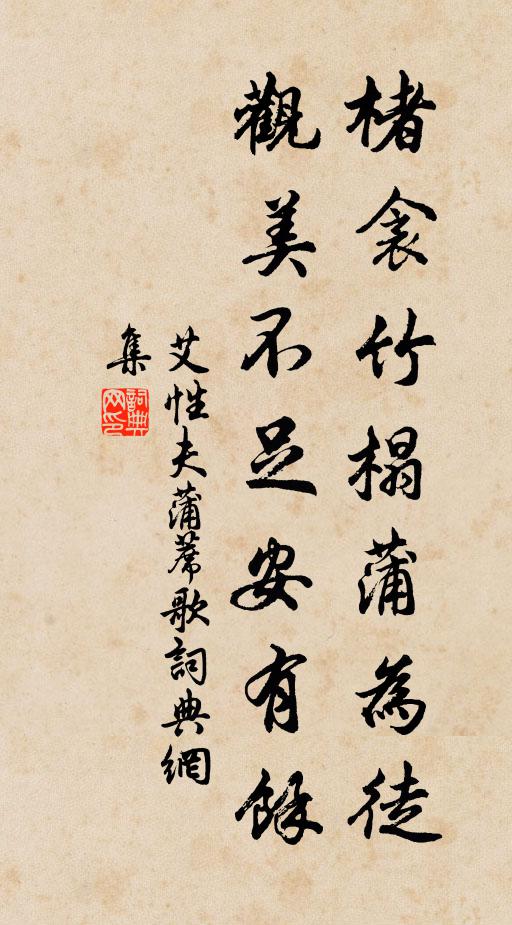 楮衾竹榻蒲為徒
觀美不足安有餘
艾性夫蒲蓆歌詞典網
集
詞典
网印